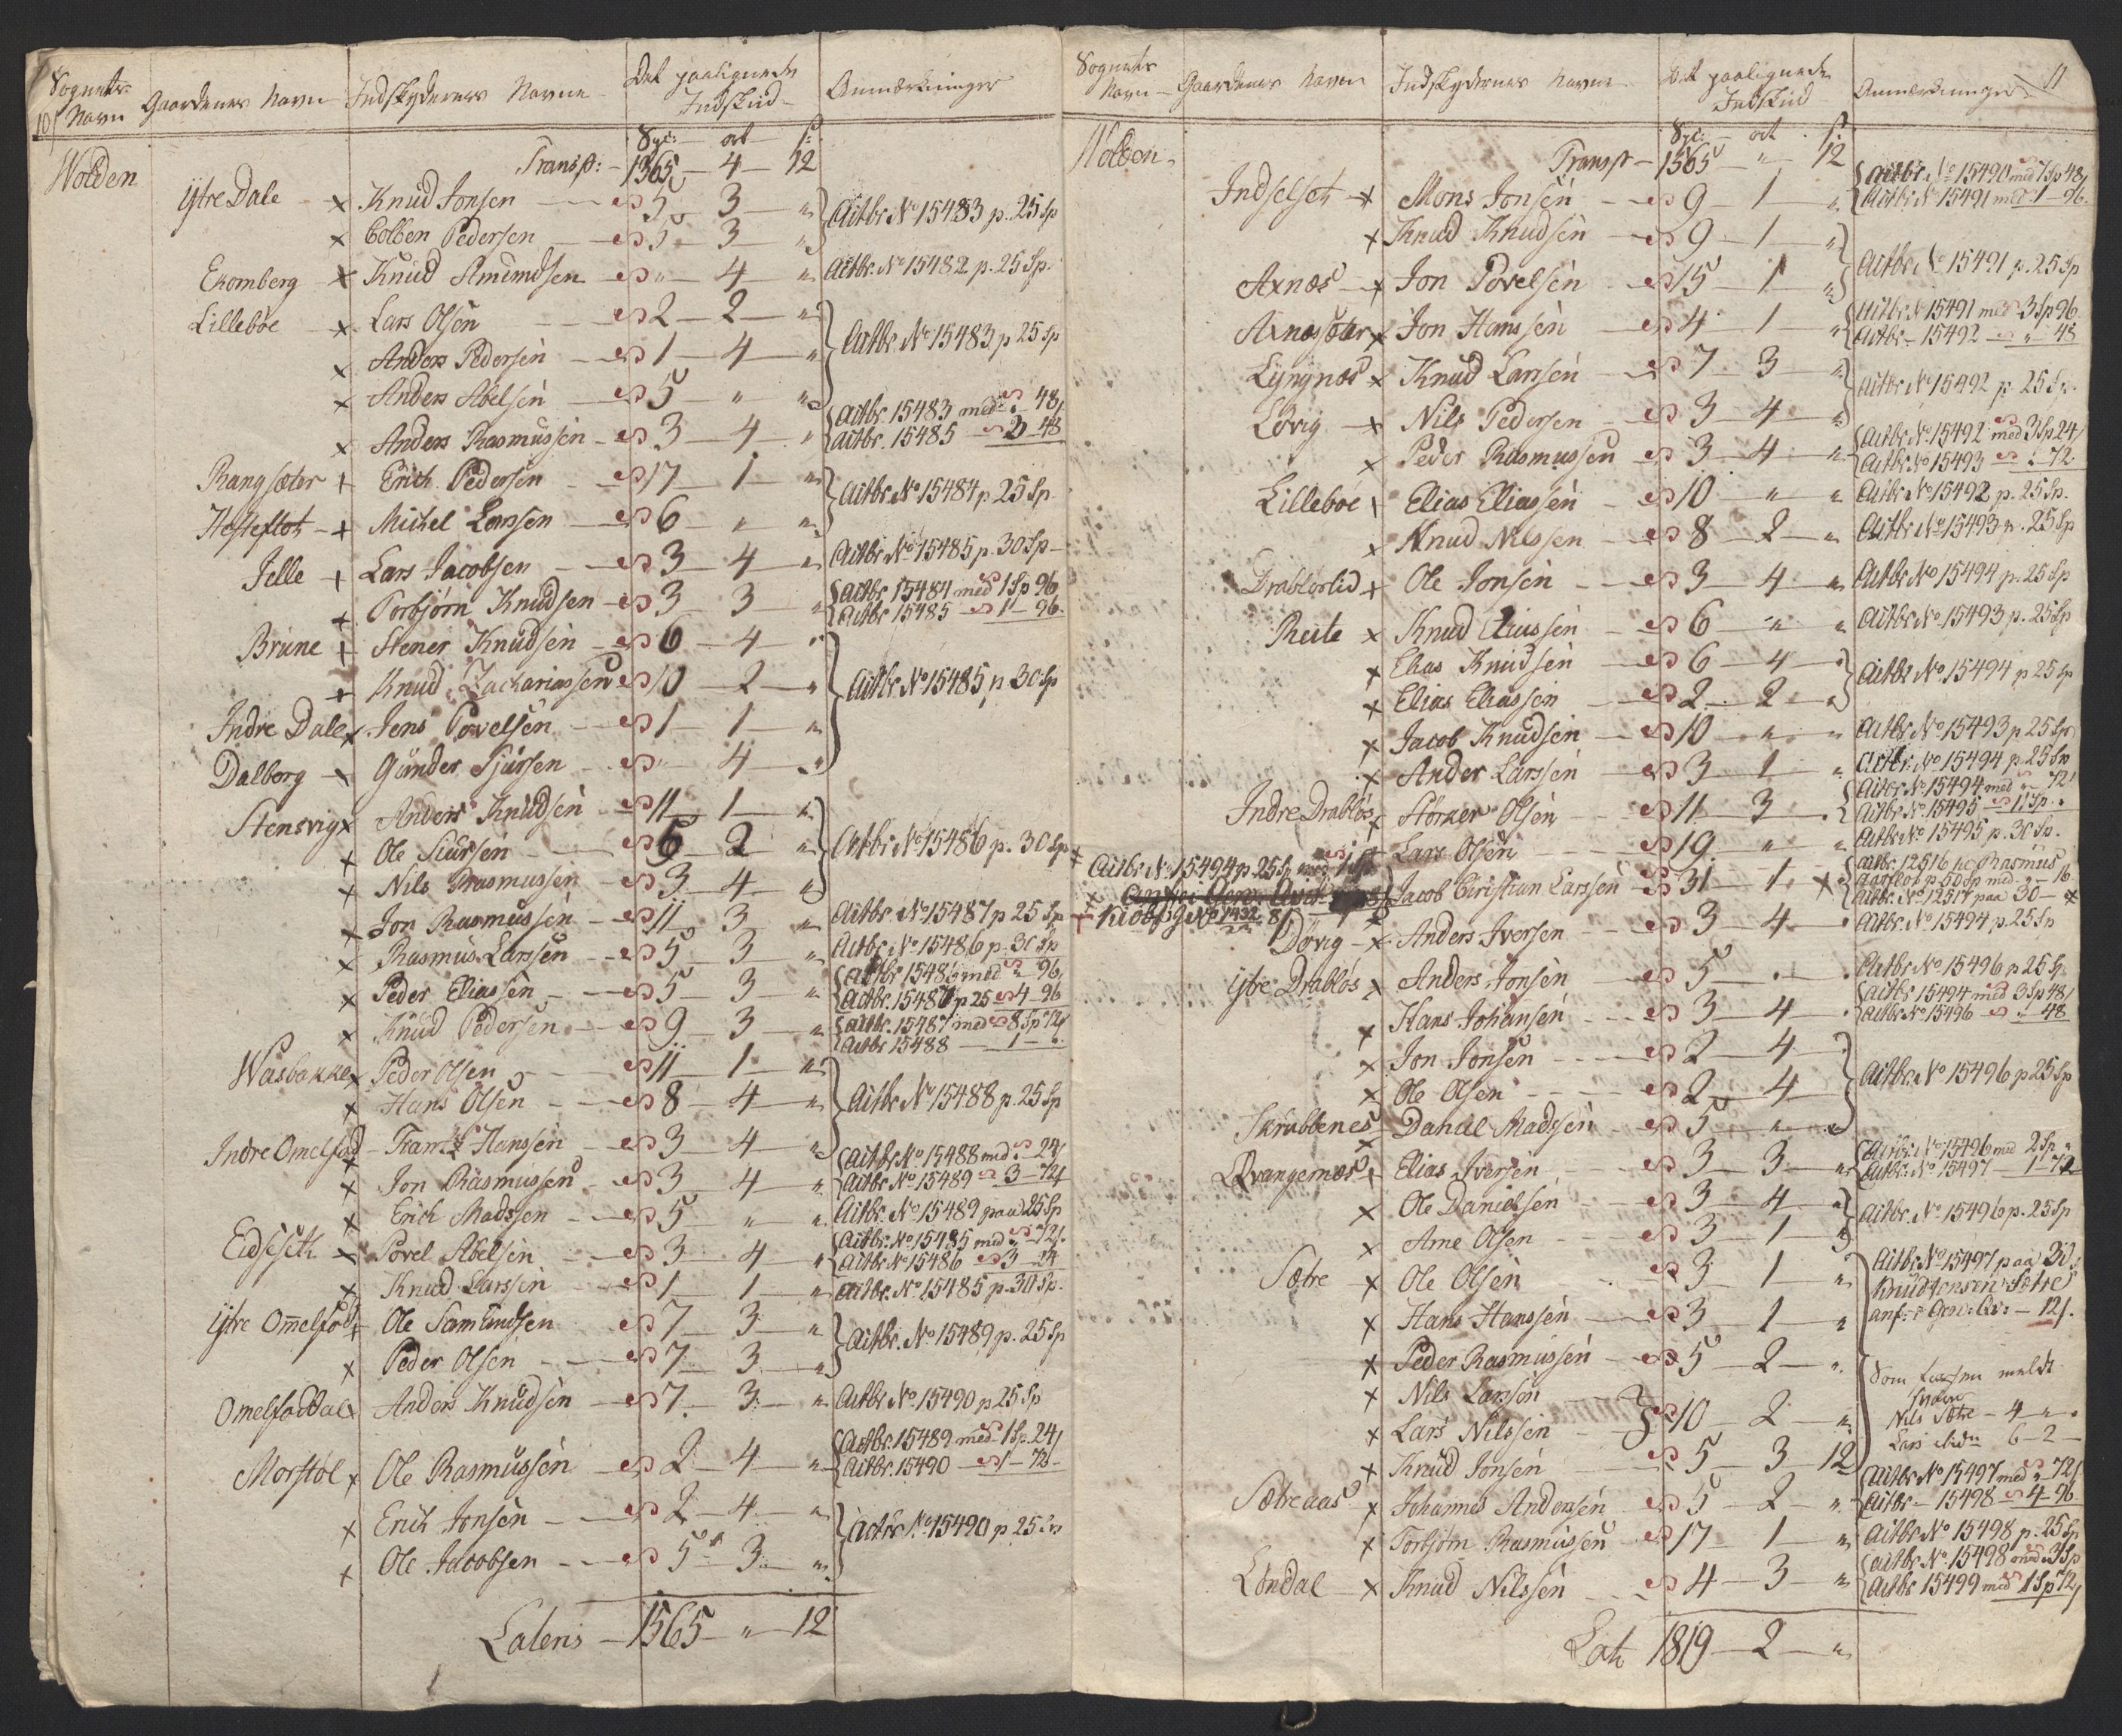 Sognets Navn Gaardenes Navn Indskydernes Navne Det paalignede Indskud Anmærkninger
10
Spc: ort s:
Wolden Transp: 1365 4 12
Ytre Dale x Knud Jonsen 5 3 " Actbr No 15483 p. 25 Sp
x Colben Pedersen 5 3 "
Ekornberg x Knud Amundsen " 4 " Actbr. No 15482 p. 25 Sp.
Lillebøe x Lars Olsen 2 2 " Actbr. No 15483 p 25 Sp
x Anders Pedersen 1 4 "
x Anders Abelsen 5 " "
x Anders Rasmussen 3 4 " Actbr. 15483 med " 48
Actbr. 15485 3 48
Rangsæter x Erich Pedersen 17 1 " Actbr. No 15484 p. 25 Sp
Hesteflot x Michel Larsen 6 " "
Jelle x Lars Jacobsen 3 4 " Actbr No 15485 p. 30 Sp
x Torbjørn Knudsen 3 3 " Actbr 15484 med 1 Sp 96
Actbr 15485 1 96
Brune x Stener Knudsen 6 4 " Actbr No 15485 p 30 Sp
x Knud Zachariassen 10 2 "
Indre Dale x Jens Povelsen 1 1 "
Dalberg x Gunder Sjursen " 4 "
Stensvig x Anders Knudsen 11 1 " Actbr No 15486 p. 30 Sp
x Ole Siursen 5 2 "
x Nils Rasmussen 3 4 "
x Jon Rasmussen 11 3 " Actbr. No 15487 p 25 Sp
x Rasmus Larssen 5 3 " Actbr. No 15486 p. 30 Sp
x Peder Eliassen 5 3 " Actbr 15486 med " 96
Actbr. 15487 p 25 4 96
x Knud Pedersen 9 3 " Actbr. 15487 med 8 Sp 72
Actbr 15488 1 "
Wasbakke x Peder Olsen 11 1 " Actbr No 15488 p. 25 Sp
x Hans Olsen 8 4 "
Indre Omelfod x Frantz Hanssen 3 4 "
x Jon Rasmussen 3 4 " Actbr No. 15488 med " 24
Actbr. No 15489 3 72
x Erich Madssen 5 " " Actbr. No 15489 paa 25 Sp
Eidseth x Povel Abelsen 3 4 " Actbr. No 15485 med " 72
Actbr No 15486 3 24
x Knud Larssen 1 1 " Actbr. No 15485 p. 30 Sp.
Ytre Omelfod x Ole Samundsen 7 3 " Actbr. No 15489 p. 25 Sp
x Peder Olsen 7 3 "
Omelfoddal x Anders Knudsen 7 3 " Actbr No 15490 p 25 Sp
Morstøl x Ole Rasmussen 2 4 " Actbr. 15489 med 1 Sp. 24
Actbr. 15490 1 72
x Erich Jonsen 2 4 " Actbr No 15490 p 25 Sp
x Ole Jacobsen 5 3 "
Lateris 1565 " 12
Sognets Navn Gaardenes Navn Indskydernes Navne Det paalignede Indskud Anmærkninger 11
Spc: ort s:
Wolden Transp 1565 " 12
Indselset x Mons Jonsen 9 1 " Actbr. No 15490 med 7 Sp 48
Actbr No 15491 med 1 96.
x Knud Knudsen 9 1 " Actbr. No 15491 p. 25 Sp
Axnæs x Jon Povelsen 15 1 "
Axnæsæter x Jon Hanssen 4 1 " Actbr No 15491 med 3 Sp 96
Actbr 15492 " 48
Lyngnæs x Knud Larsen 7 3 " Actbr No 15492 p. 25 Sp.
Løvig x Nils Pedersen 3 4 "
x Peder Rasmussen 3 4 " Actbr No 15492 med 3 Sp. 24
Actbr. No 15493 " 72
Lillebøe x Elias Eliassen 10 " " Actbr No 15492 p. 25 Sp.
x Knud Nilssen 8 2 " Actbr No 15493 p. 25 Sp
Drabløslid x Ole Jonsen 3 4 " Actbr No 15494 p. 25 Sp
Reite x Knud Eliassen 6 " " Actbr. No. 15493 p. 25 Sp
x Elias Knudsen 6 4 " Actbr No. 15494 p 25 Sp
x Elias Eliassen 2 2 "
x Jacob Knudsen 10 " " Actbr. No 15493 p 25 Sp
x Ander Larssen 3 1 " Actbr: No 15494 p. 25 Sp
Indre Drabløs x Størker Olsen 11 3 " Actbr No 15494 med " 72
Actbr. No. 15495 11 Sp.
x Lars Olsen 19 " " Actbr No 15495 p. 30 Sp.
Actbr No 15494 p 25 Sp med 1 Sp
Jacob Christian Larssen 31 1 x Actbr. 12516 Rasmus
Aarflot p 50 Sp med " 16
Actbr. No 12517 paa 30
No 1432
Døvig x Anders Iversen 3 4 " Actbr. No 15494 p. 25 Sp
Ytre Drabløs x Anders Jonsen 5 " " Actbr No 15496 p 25 Sp
x Hans Johansen 3 4 " Actbr 15494 med 3 Sp 48
Actbr No 15496 " 48
x Jon Jonsen 2 4 " Actbr. No 15496 p 25 Sp
x Ole Olsen 2 4
Skrubbenes x Daniel Madssen 5 " "
Qvangernæs x Elias Iversen 3 3 " Actbr. No 15496 med 2 Sp "
Actbr. No 15497 1 72
x Ole Danielsen 3 4 " Actbr. No 15496 p. 25 Sp
x Arne Olsen 3 1 "
Sætre x Ole Olsen 3 1 " Actbr. No 15497 paa 30
x Hans Hanssen 3 1 " Knud Jonsen Sætre
anf: Gen: Qv: 12
x Peder Rasmussen 5 2 " Som Larsen meldt
x Nils Larsen
x Lars Nilssen 10 2 " Nils Sætre 4 "
Lars 6 2
x Knud Jonsen 5 3 12
Sætreaas x Johannes Andersen 5 2 " Actbr No 15497 med " 72
Actbr 15498 4 96
x Torbjørn Rasmussen 17 1 " Actbr No 15498 p. 25 Sp
Løndal x Knud Nilssen 4 3 " Actbr. No. 15498 med 3 Sp
Actbr 15499 med 1 Sp 72
Lat 1819 2 "